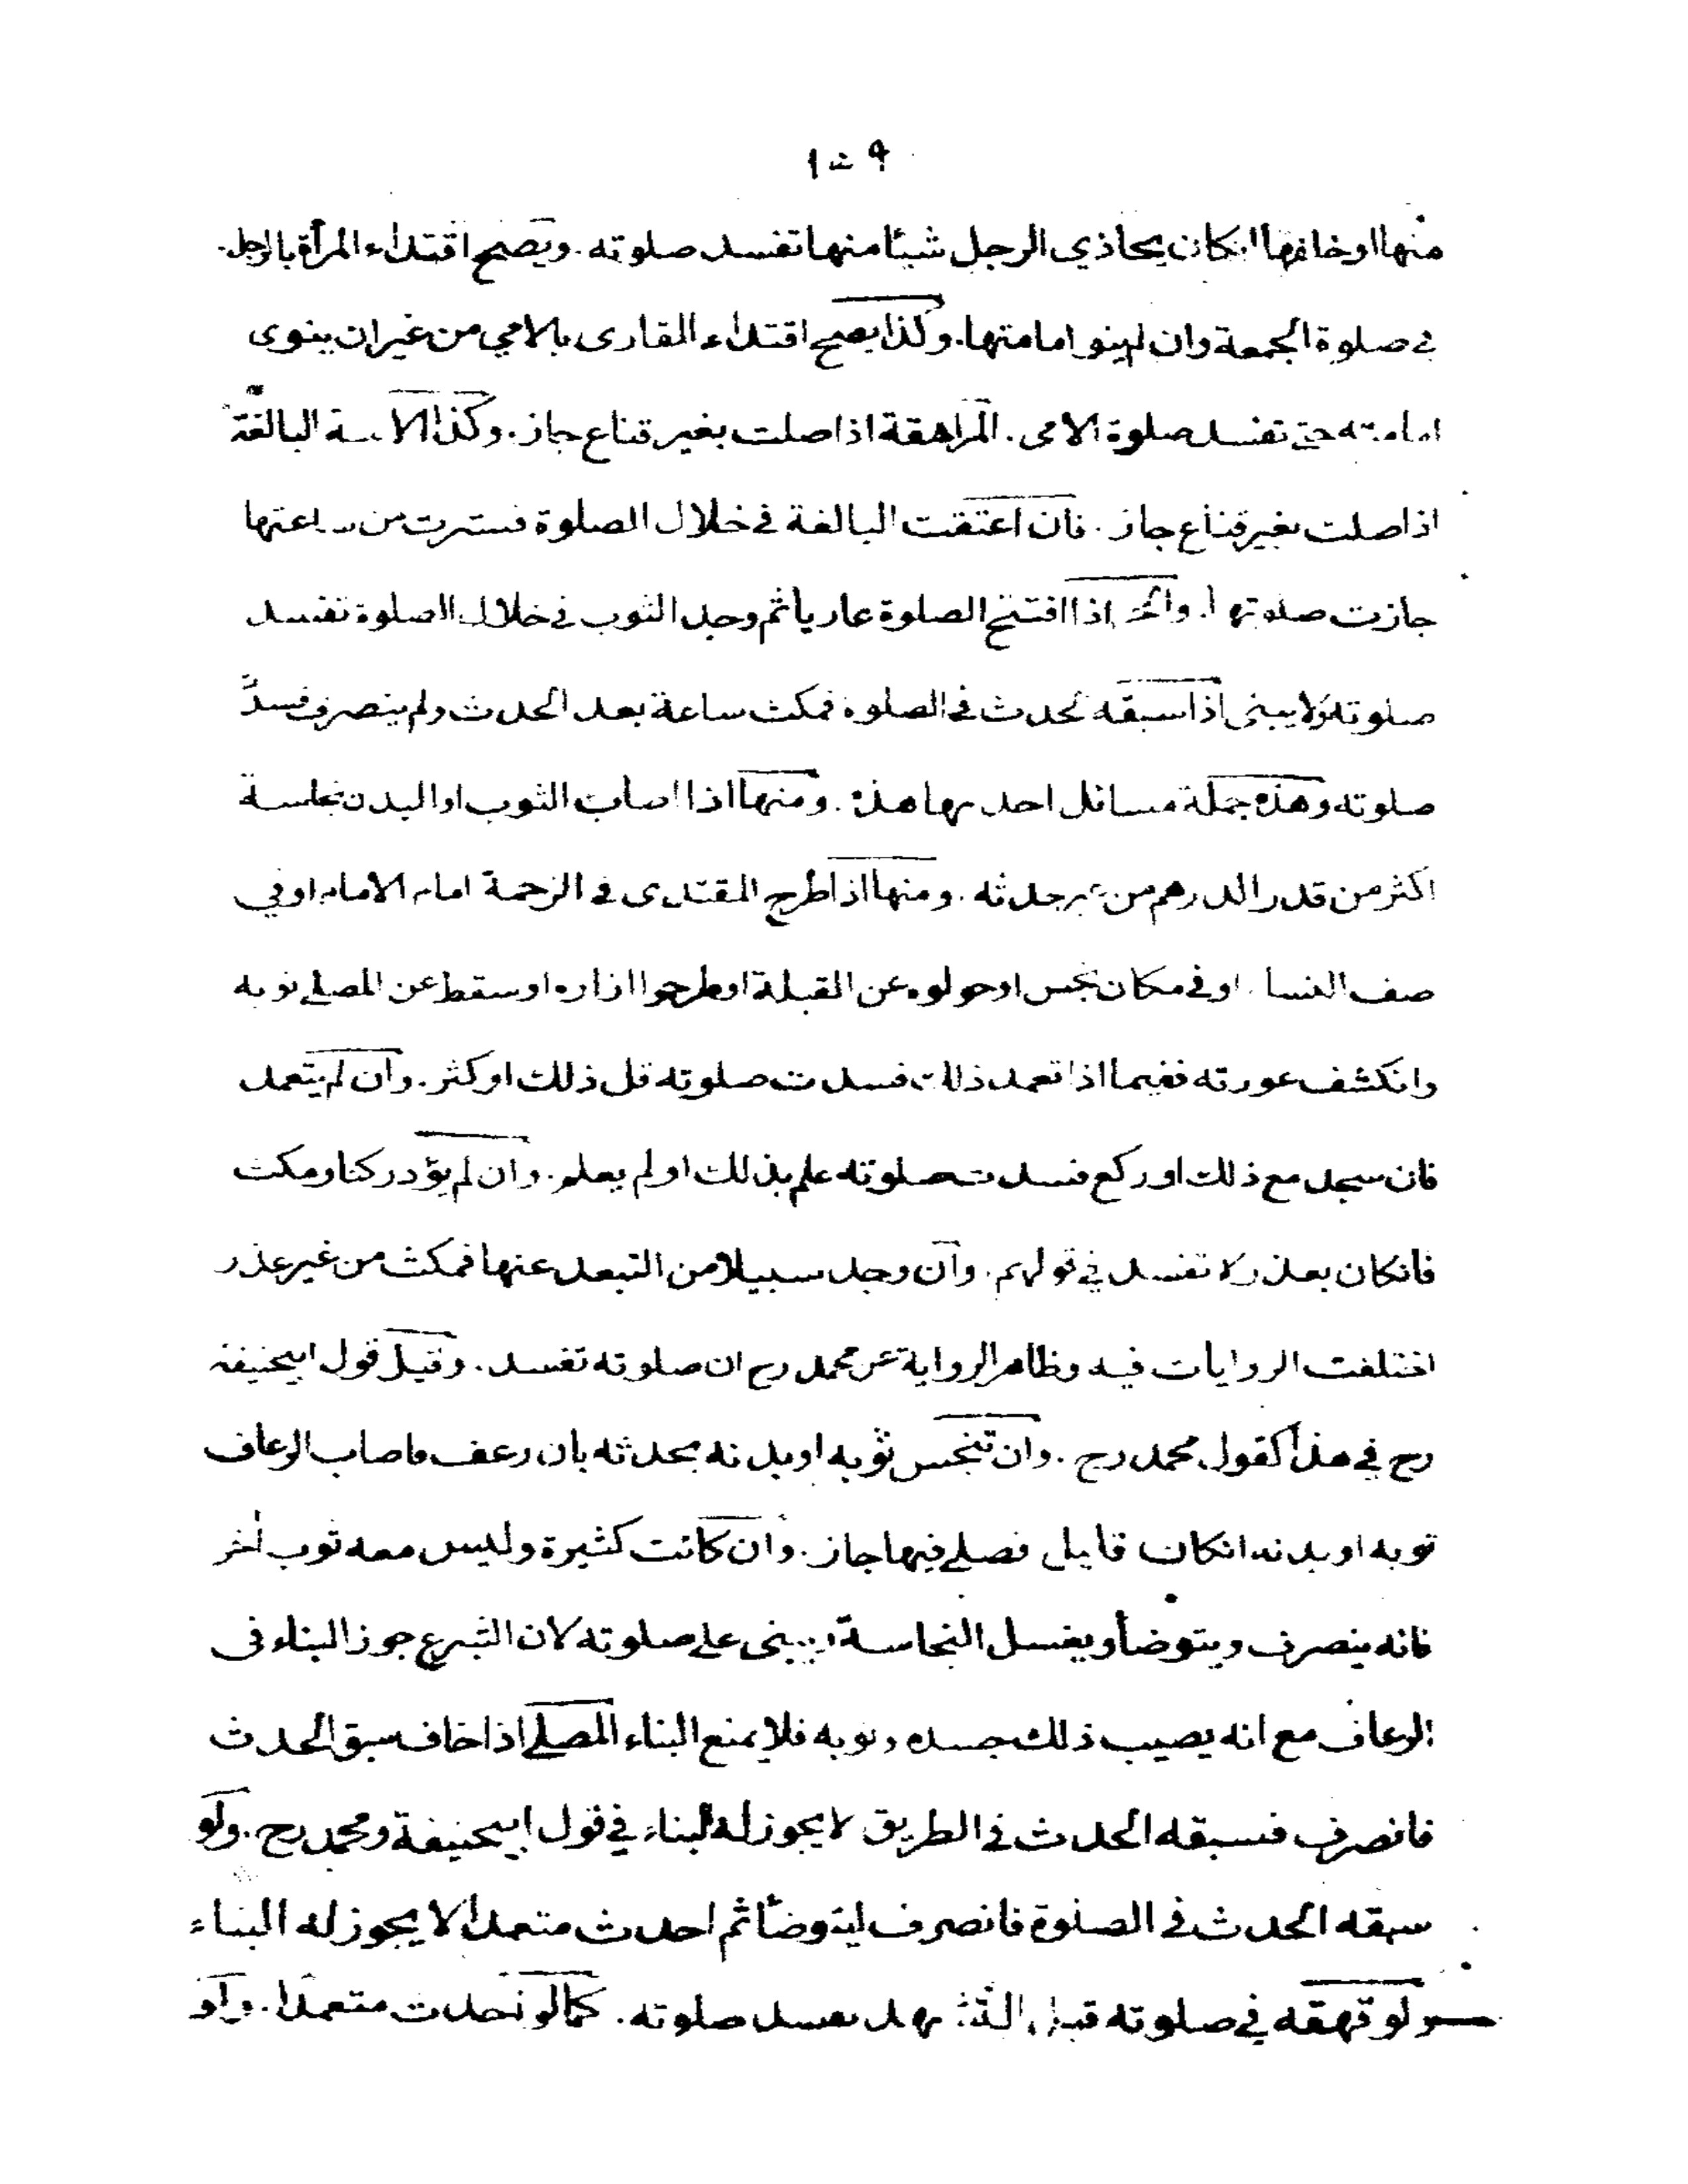 ١٠٩
منها او خلفها انكان يحاذي الرجل شيئا منها تفسد صلوته. ويصح اقتداء المرأة بالرجل.
في صلوة الجمعة وان لم ينو امامتها. وكذا يصح اقتداء القارى بالامي من غير ان ينوى
امامته حتى تفسد صلوة الامى. المراهقة اذا صلت بغير قناع جاز. وكذا الامة البالغة
اذا صلت بغير قناع جاز. فان اعتقت البالغة في خلال الصلوة فسترت من ساعتها
جازت صلوتها. اذا افتتح الصلوة عاريا ثم وجد الثوب في خلال الصلوة تفسد
صلوته ولا يبنى اذا سبقه لحدث في الصلوة فمكث ساعة بعد الحدث ولم ينصرف فسدت
صلوته وهذه جملة مسائل احدىها هذه. ومنها اذا اصاب الثوب او البدن نجاسة
اكثر من قدر الدرهم من غير حدثه. ومنها اذا طرح المقتدى في الزحمة امام الامام او في
صف النساء او في مكان نجس او حولوه عن القبلة او طرحوا ازاره او سقط عن المصلے ثوبه
وانكشف عورته ففيما اذا تعمد ذلك فسدت صلوته قل ذلك او كثر. وان لم يتعمد
فان سجد مع ذلك او ركع فسدت صلوته علم بذلك او لم يعلم. وان لم يؤد ركنا ومكث
فانكان بعذر لا تفسد في قولهم. وان وجد سبيلا من التبعد عنها فمكث من غير عذر
اختلفت الروايات فيه وظاهر الرواية عن محمد رح ان صلوته تفسد. وقيل قول ابيحنيفة
رح في هذا كقول محمد رح. وان تنجس ثوبه او بدنه بحدثه بان رعف فاصاب الرعاف
ثوبه او بدنه انكان قليل فصلے فيها جاز. وان كانت كثيرة وليس معه ثوب اخر
فانه ينصرف ويتوضأ ويغسل النجاسة ويبنى علے صلوته لان الشرع جوز البناء فى
الرعاف مع انه يصيب ذلك جسده وثوبه فلا يمنع البناء المصلے اذا خاف سبق الحدث
فانصرف فسبقه الحدث في الطريق لا يجوز له البناء في قول ابيحنيفة ومحمد رح. ولو
سبقه الحدث في الصلوة فانصرف ليتوضأ ثم احدث متعمدا لا يجوز له البناء
ولو قهقه في صلوته قبل التشهد تفسد صلوته. كما لو احدث متعمدا. ولو